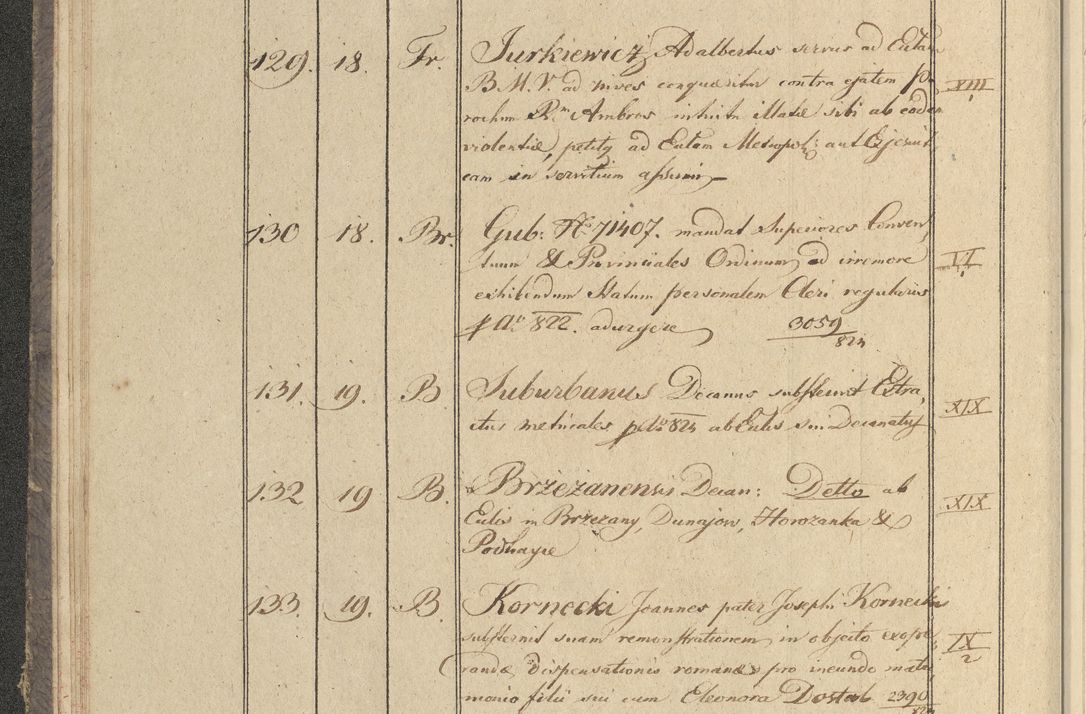 129. 18. Fr. Jurkiewicz Adalbertus servus ad Eccl̄am
B.M.V. ad nives conquæritur contra ejatem Pa
rochum Rm Ambros intuitu illatæ sibi ab eodem
violentiæ, petitq ad Eccl̄am Metropol: aut Exjesuit
cam in servitium assumi XIII
130 18. Br. Gub: N 71407. mandat Superiores Conven
tuum & Provinciales Ordinum, ad irremore
exhibendum Statum personalem Cleri regularis
p Aº 822. adurgere 3059/824 VI
131. 19. B Suburbanus Decanus substernit Extra
ctus metricales p Aº 824 ab Eccliis sui Decanatus XIX
132 19 B. Brzezanensis Decan: Detto ab
Eccliis in Brzezany, Dunajow, Horozanka &
Podhayce XIX
133. 19. B Kornecki Joannes pater Josephi Kornecki
substernit suam remonstrationem in objecto exope
randæ dispensationis romanæ pro ineundo matri
monio filii sui cum Eleonora Dostal 2390/824 IX/2